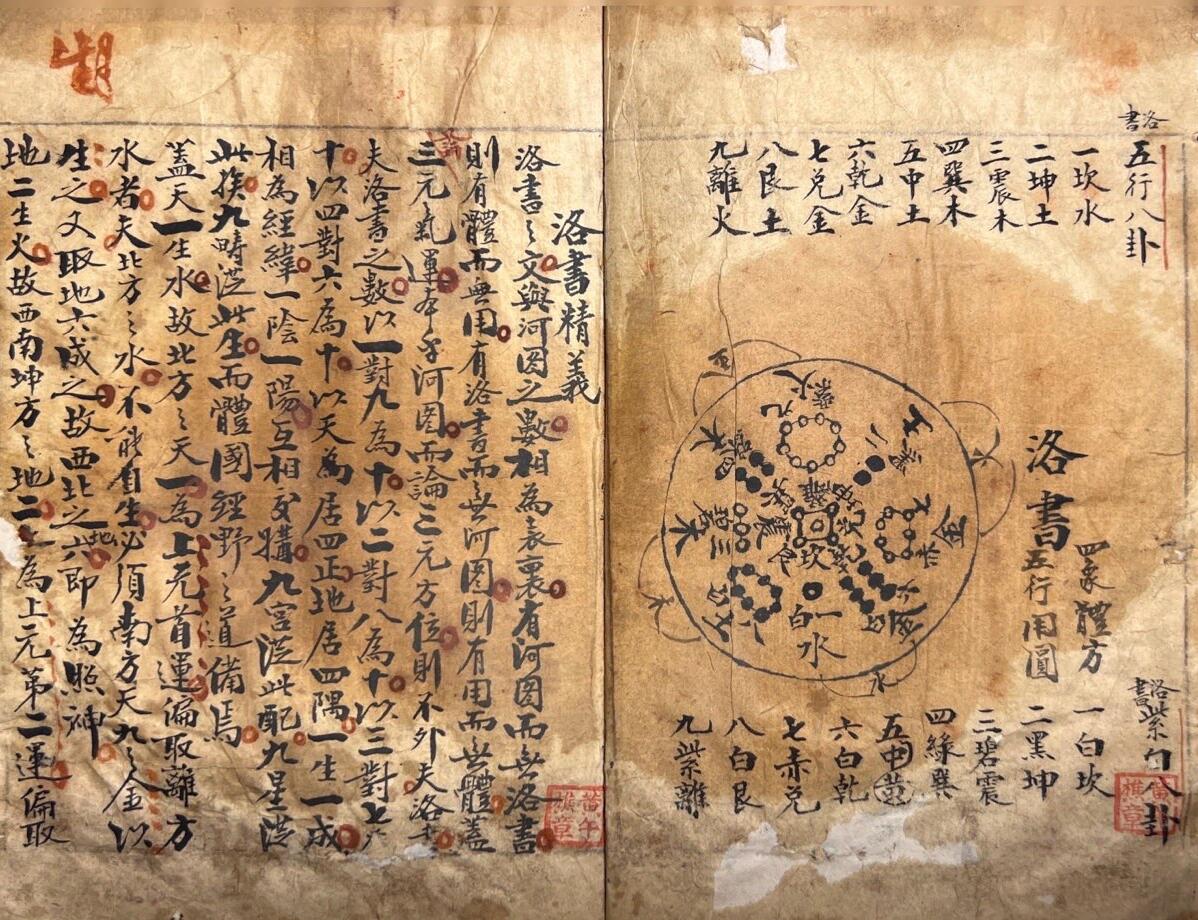 洛書
五行八卦
一坎水
二坤土
三震木
四巽木
五中土
六乾金
七兌金
八艮土
九離火
洛書
四象體方
五行用圓
火
紫
九
離
八
木
碧
三
木
金
坎
一
白
水
洛書紫白八卦
一白坎
二黑坤
三碧震
四綠巽
五中黄
六白乾
七赤兌
八白艮
九紫離
洛書精義
洛書之文與河图之數相為表裏有河图而無洛書
則有體而無用有洛書而無河图則有用而無體蓋
三元氣運本乎河图而論三元方位則不外夫洛書
夫洛書之數以一對九為十以二對八為十以三對七為
十以四對六為十以天為居四正地居四隅一生一成
相為經緯一陰一陽互相交媾九宮從此配九星從
此挨九疇從此生而體國經野之道備焉
蓋天一生水故北方之天一為上元首運偏取離方
水者夫北方之水不能自生必須南方天九之金以
生之又取地六成之故西北之地六即為照神
地二生火故西南坤方之地二為上元第二運偏取